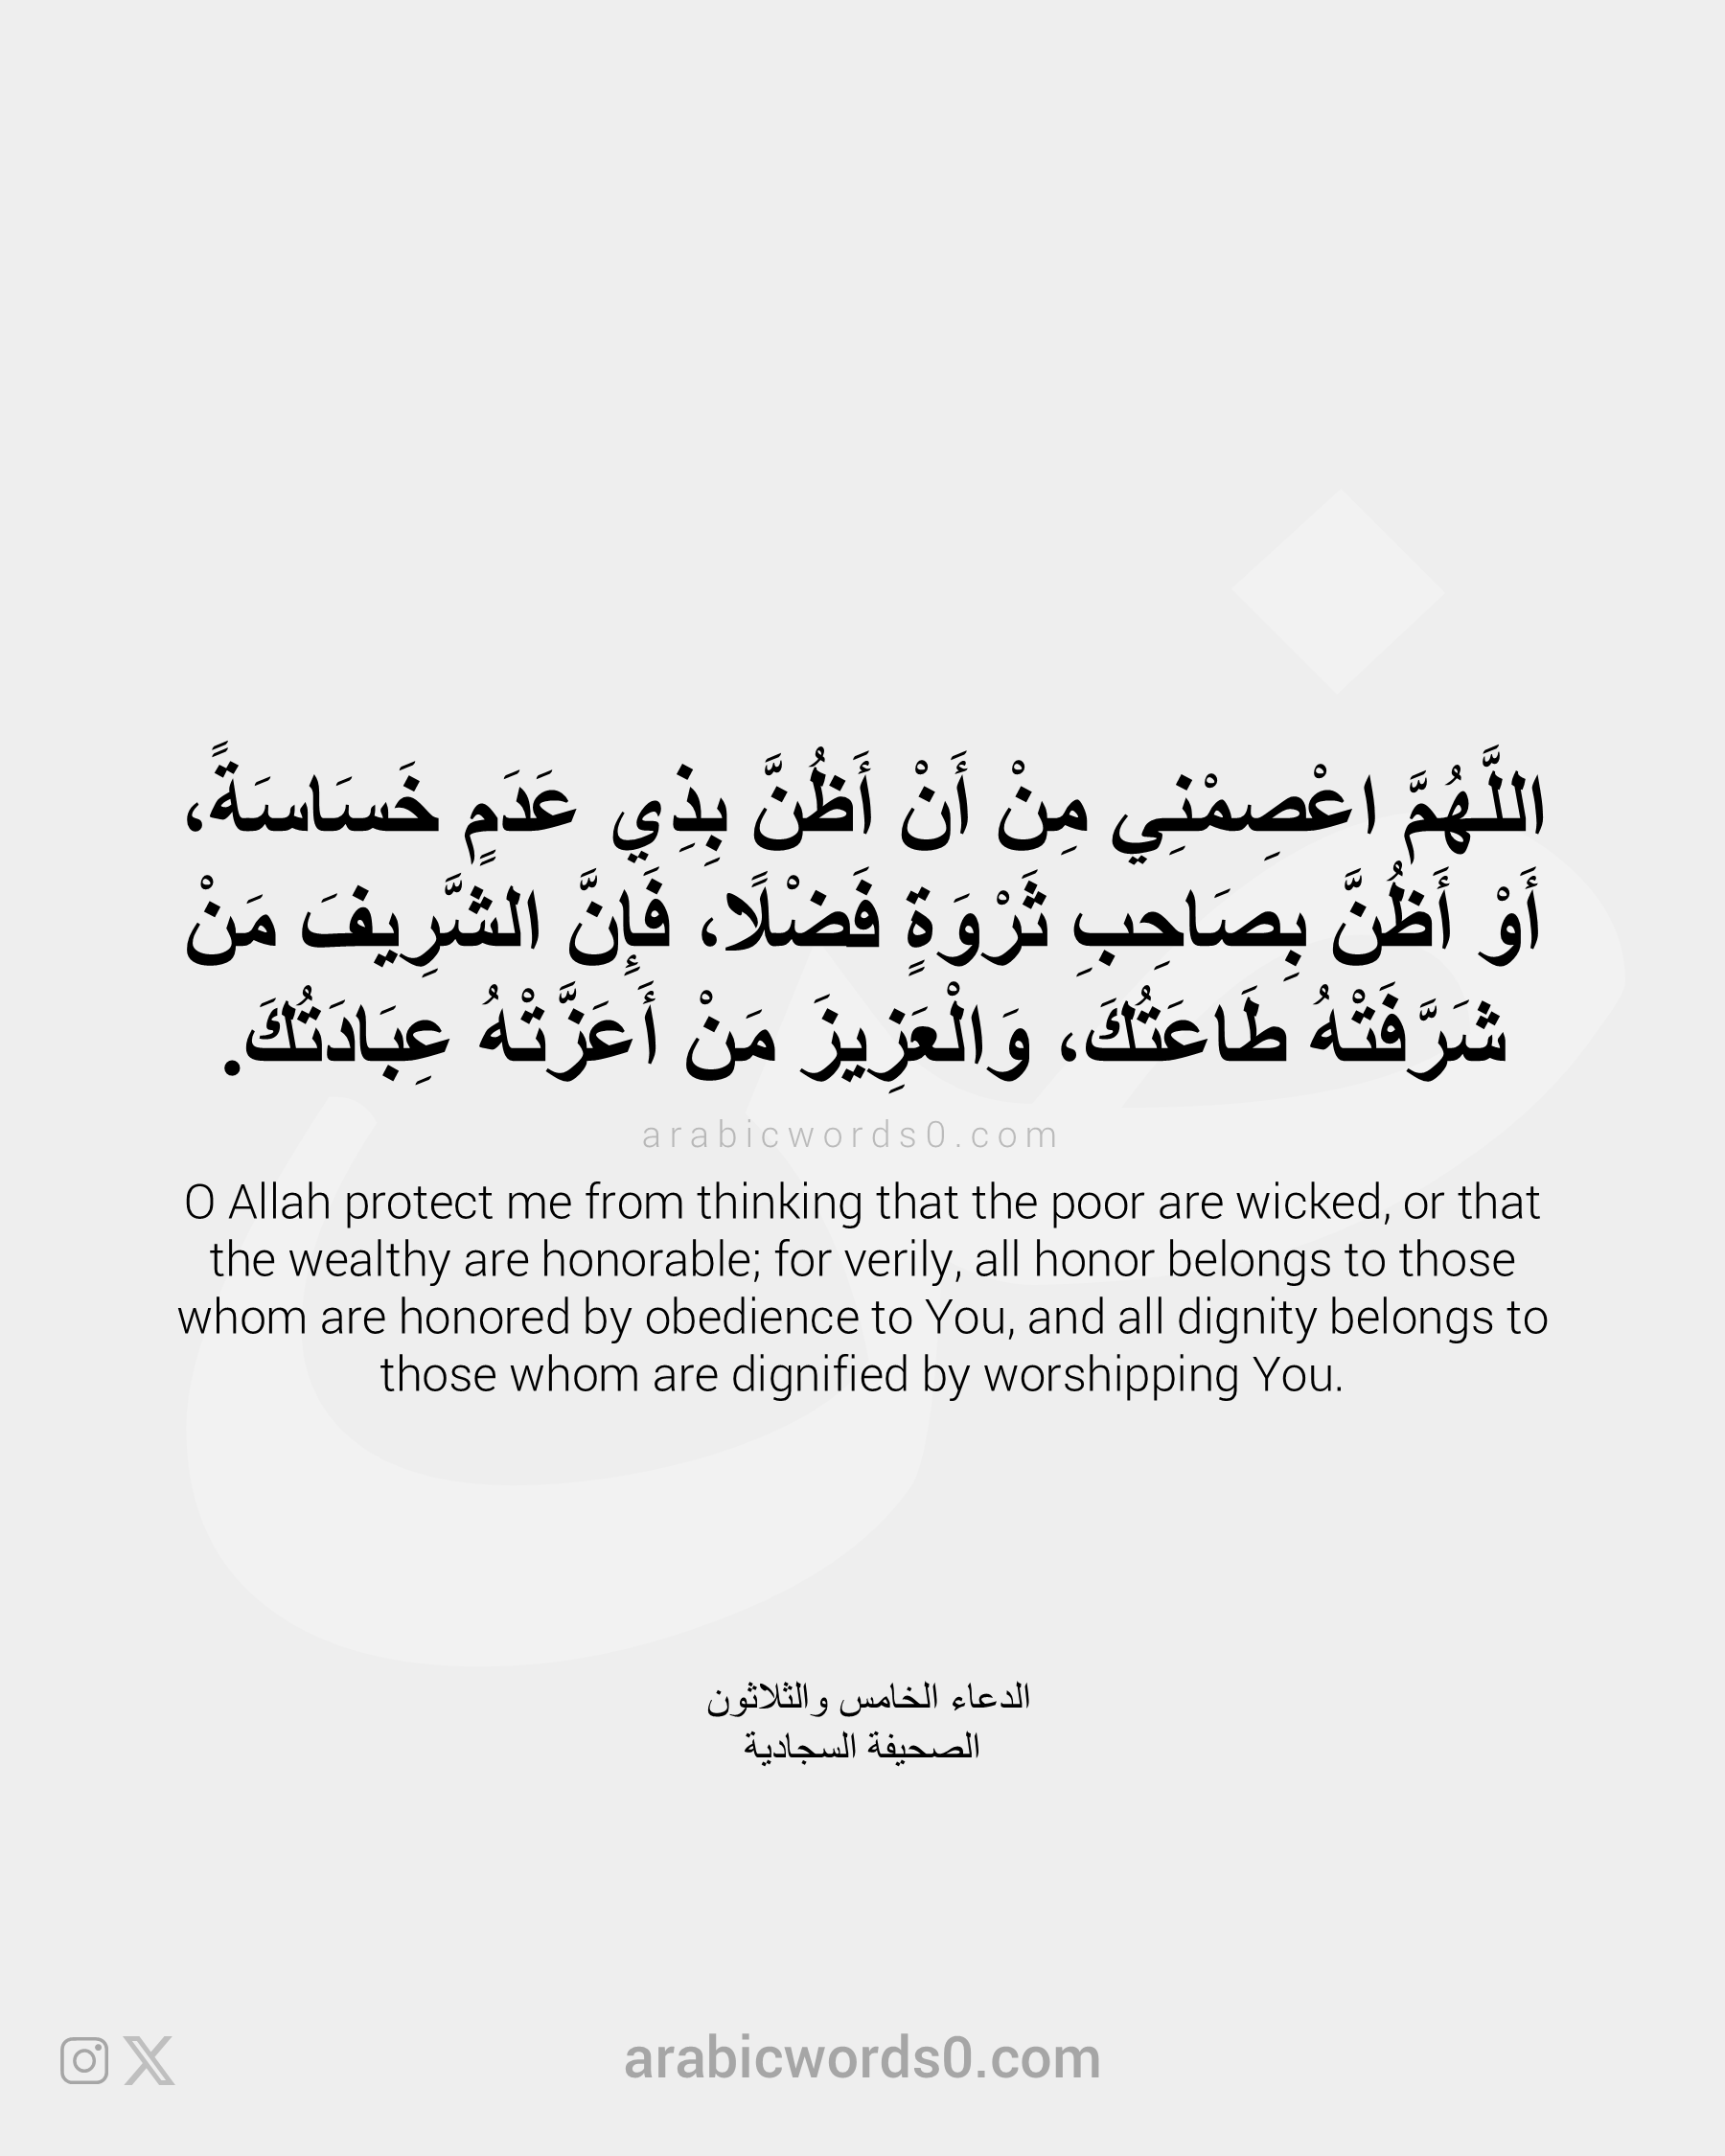 اللَّهُمَّ اعْصِمْنِي مِنْ أَنْ أَظُنَّ بِذِي عَدَمٍ خَسَاسَةً،
أَوْ أَظُنَّ بِصَاحِبِ ثَرْوَةٍ فَضْلًا، فَإِنَّ الشَّرِيفَ مَنْ
شَرَّفَتْهُ طَاعَتُكَ، وَالْعَزِيزَ مَنْ أَعَزَّتْهُ عِبَادَتُكَ.
arabicwords0.com
O Allah protect me from thinking that the poor are wicked, or that
the wealthy are honorable; for verily, all honor belongs to those
whom are honored by obedience to You, and all dignity belongs to
those whom are dignified by worshipping You.
الدعاء الخامس والثلاثون
الصحيفة السجادية
arabicwords0.com